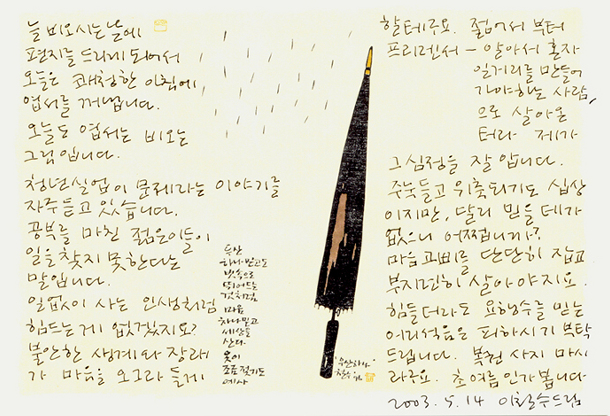 늘 비오시는 날에
편지를 드리게 되어서
오늘은 쾌청한 아침에
엽서를 거냅니다.
오늘도 엽서는 비오는
그림입니다.
청년실업이 문제라는 이야기를
자주 듣고 있습니다.
공부를 마친 젊은이들이
일을 찾지 못한다는
말입니다.
일없이 사는 인생처럼
힘드는게 없겠지요?
불안한 생계와 장래
가 마음을 오그라 들게
할테구요. 젊어서 부터
프리랜서 - 알아서 혼자
일거리를 만들어
가야하는 사람,
으로 살아온
터라 제가
그 심정을 잘 압니다.
주눅들고 위축되기도 십상
이지만, 달리 믿을 데가
없으니 어쩝니까?
마음고삐를 단단히 잡고
부지런히 살아야지요.
힘들더라도 요행수를 믿는
어리석음은 피하시기 부탁
드립니다. 복권 사지 마시
라구요. 초여름인가 봅니다
2003. 5. 14 이철수드림
우산
하나 믿고도
빗속으로
뛰어드는
것처럼
마음
하나 믿고
세상을
산다
옷이
조금 젖기도
해사